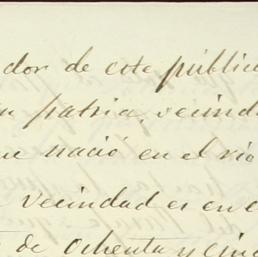 dor de este públic
n patria, vecind
ue nació en el río
vecindad es en e
de Ochenta y Cinc